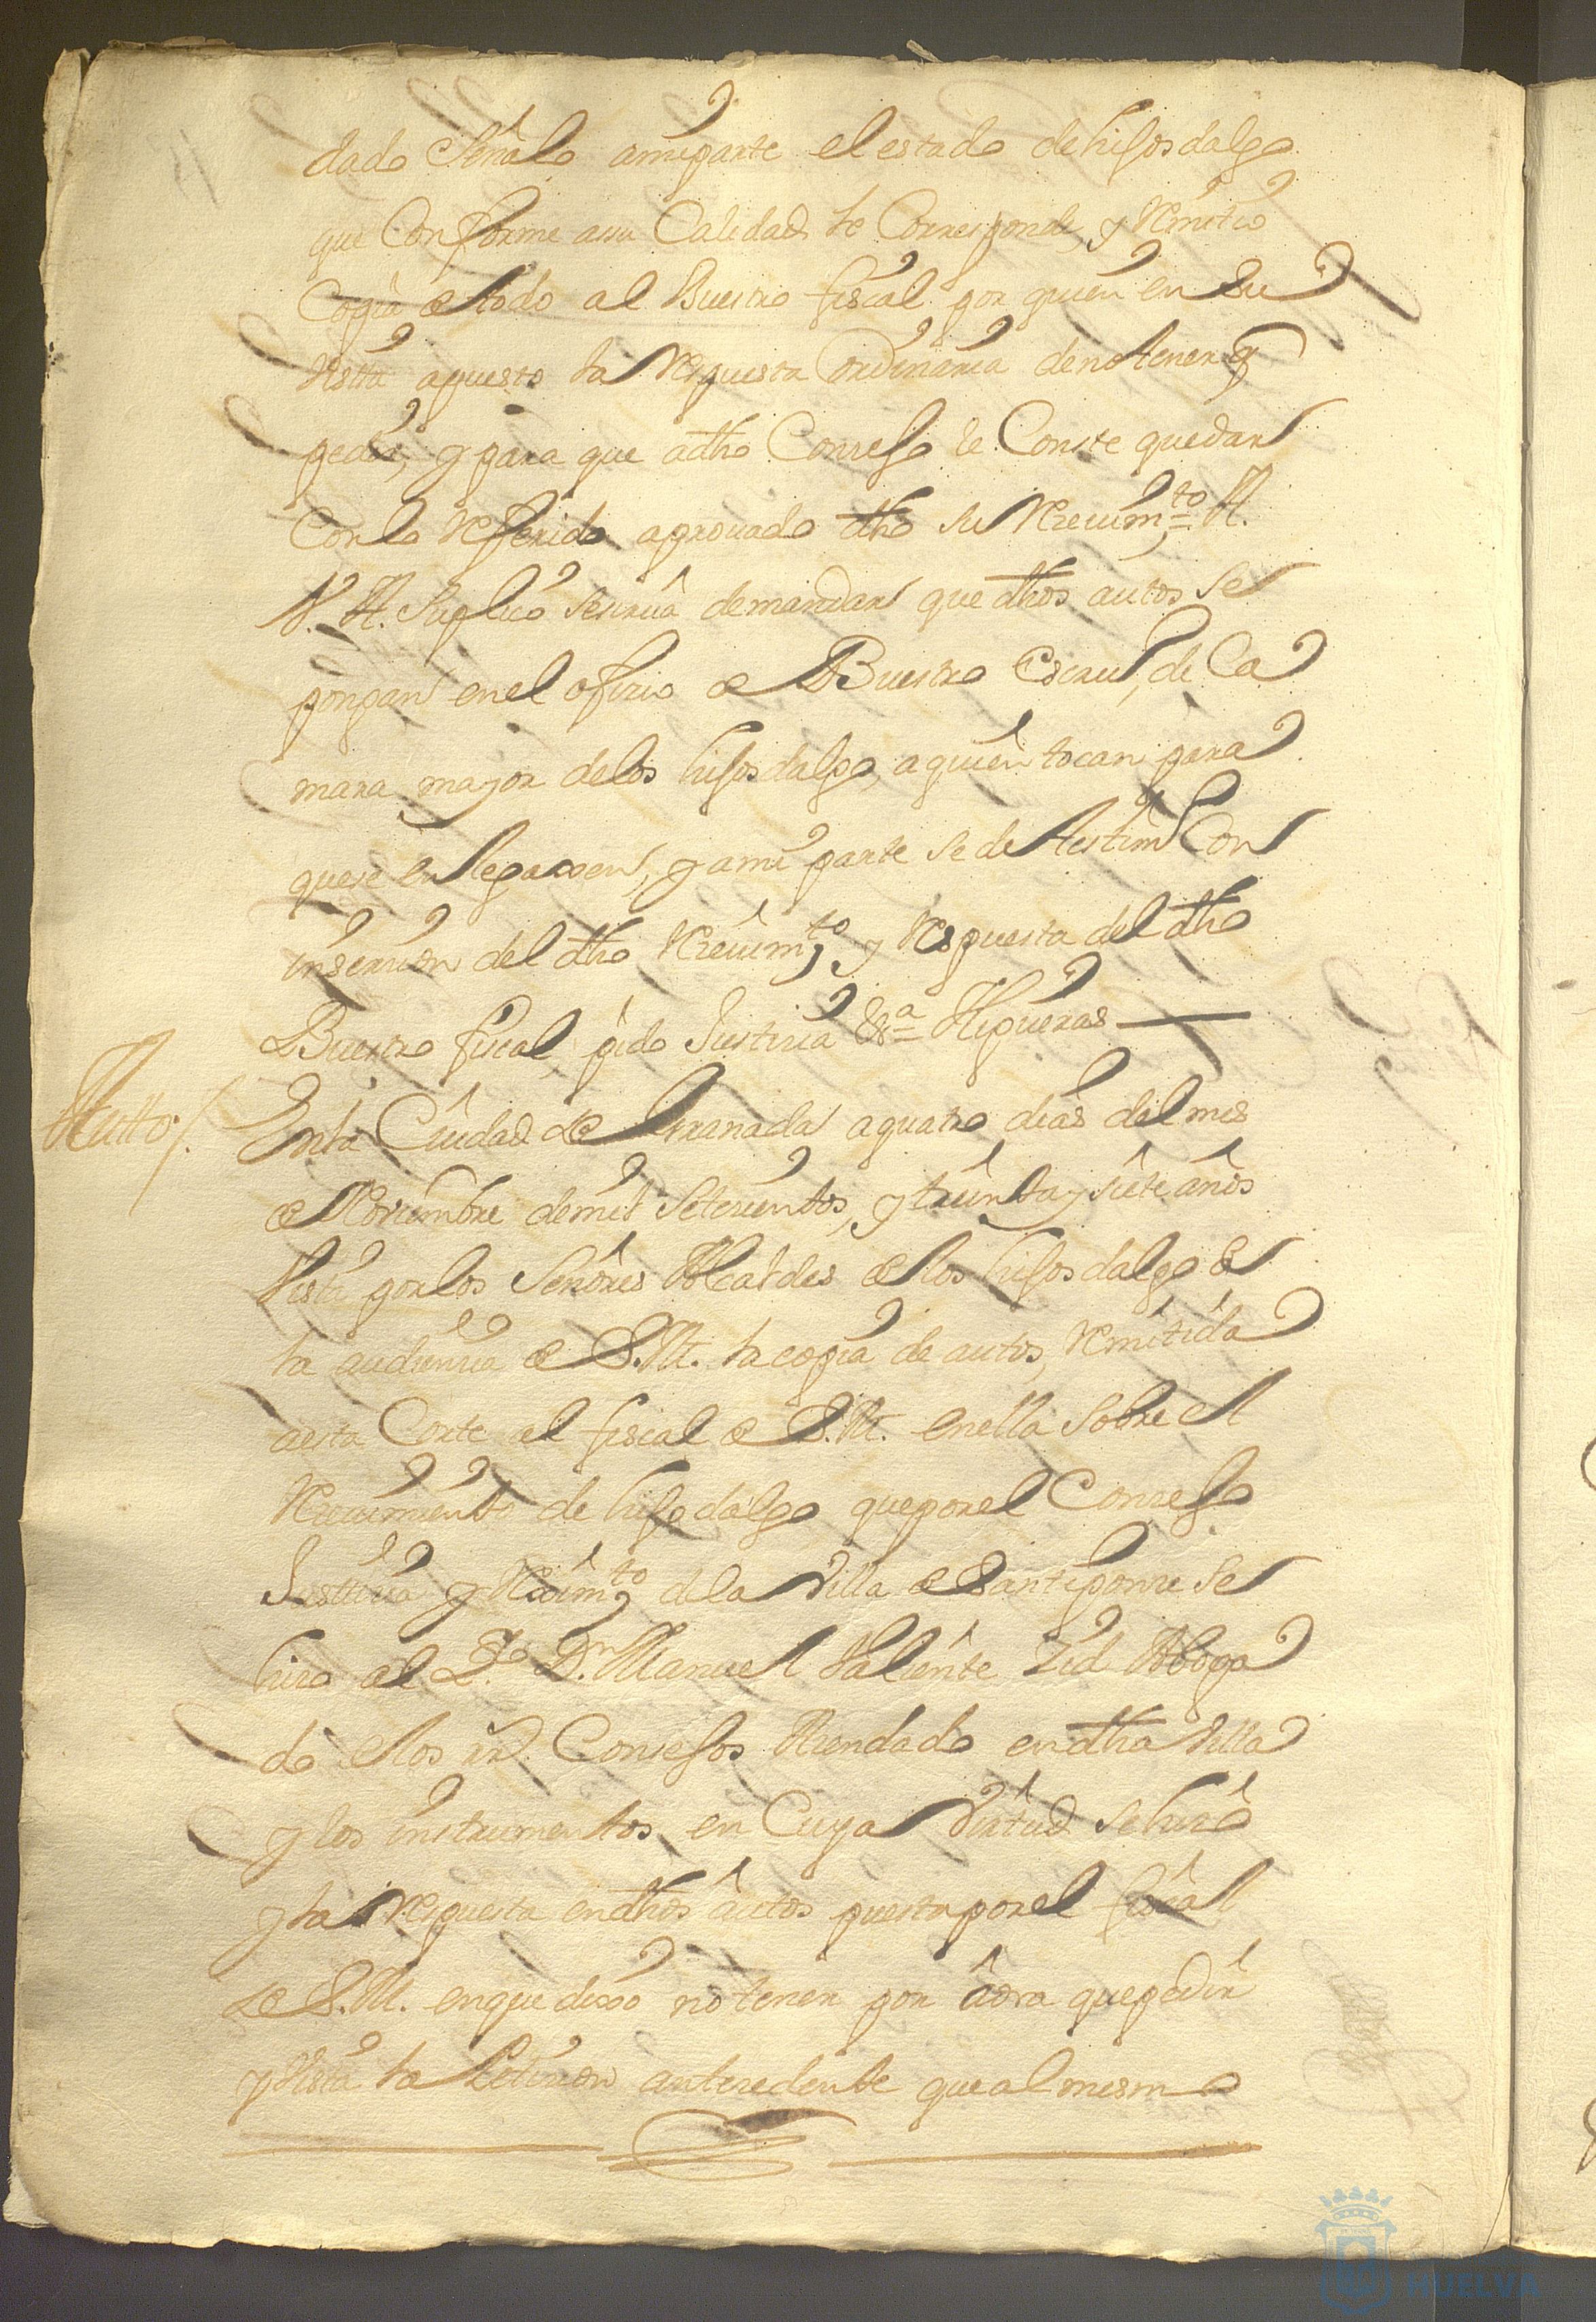 dado Señalo amiparte el estado de hijosdalgo
que Conforme assu Calidad le Corresponde, y Remitio
Copia de todo al Buestro fiscal por quien en su
Vista apuesto la Respuesta Ordinaria de no tener q
pedir, y para que adho Consejo le Conste quedar
Con lo Referido aprouado dho su Reciuim.to A.
V. A. Suplico se sirua de mandar que dhos autos se
pongan en el ofizio de Buestro Escriu, de Ca
mara mayor delos hijosdalgo, a quien tocan para
que se enlegaxen, y ami parte se de testim Con
inserzion del dho Reciuim.to y Respuesta del dho
Buestro fiscal, pido Justizia &a Higueras
Autto /.
Enla Ciudad de Granada a quatro dias del mes
de Noviembre de mil Setezientos, y treinta y siete años
Vista por los Señores Alcaldes de los hijosdalgo de
la audienzia de S. M. la copia de autos, Remitida
a esta Corte al fiscal de S. M. en ella sobre el
Reciuimiento de hijodalgo que por el Consejo
Justizia y Rexim.to de la Villa de Santiponze se
hizo al L.do D.n Manuel Valiente Zid Aboga
do de los rs. Consejos Hazendado en dha Villa
y los instrumentos en Cuya Virtud se hizo
y la Respuesta en dhos autos puesta por el fiscal
de S. M. en que dixo no tener por aora que pedir
y Vista la Petizion antezedente que al mismo
HUELVA